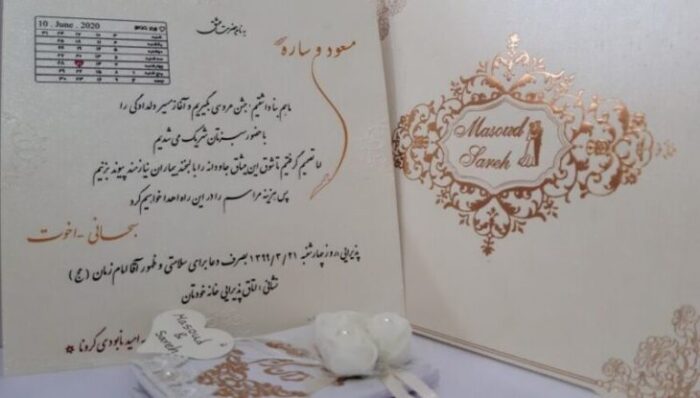 10 . June . 2020
به نام حضرت عشق
مسعود و ساره
ما هم بنا داشتیم؛ جشن عروسی بگیریم و آغاز مسیر دلدادگی را
با حضور سبزتان شریک می شدیم
اما تصمیم گرفتیم تا شوق این میثاق جاودانه را با لبخند بهاران نیازمند پیوند بزنیم
پس هزینه مراسم را در این راه اهدا خواهیم کرد
سبحانی - اخوت
پذیرایی: روز چهارشنبه ۱۳۹۹/۳/۲۱ بصرف دعا برای سلامتی و ظهور آقا امام زمان (عج)
نشانی: اتاق پذیرایی خانه خودتان
- امید نابودی کرونا
Masoud
&
Sareh
Masoud
Sareh